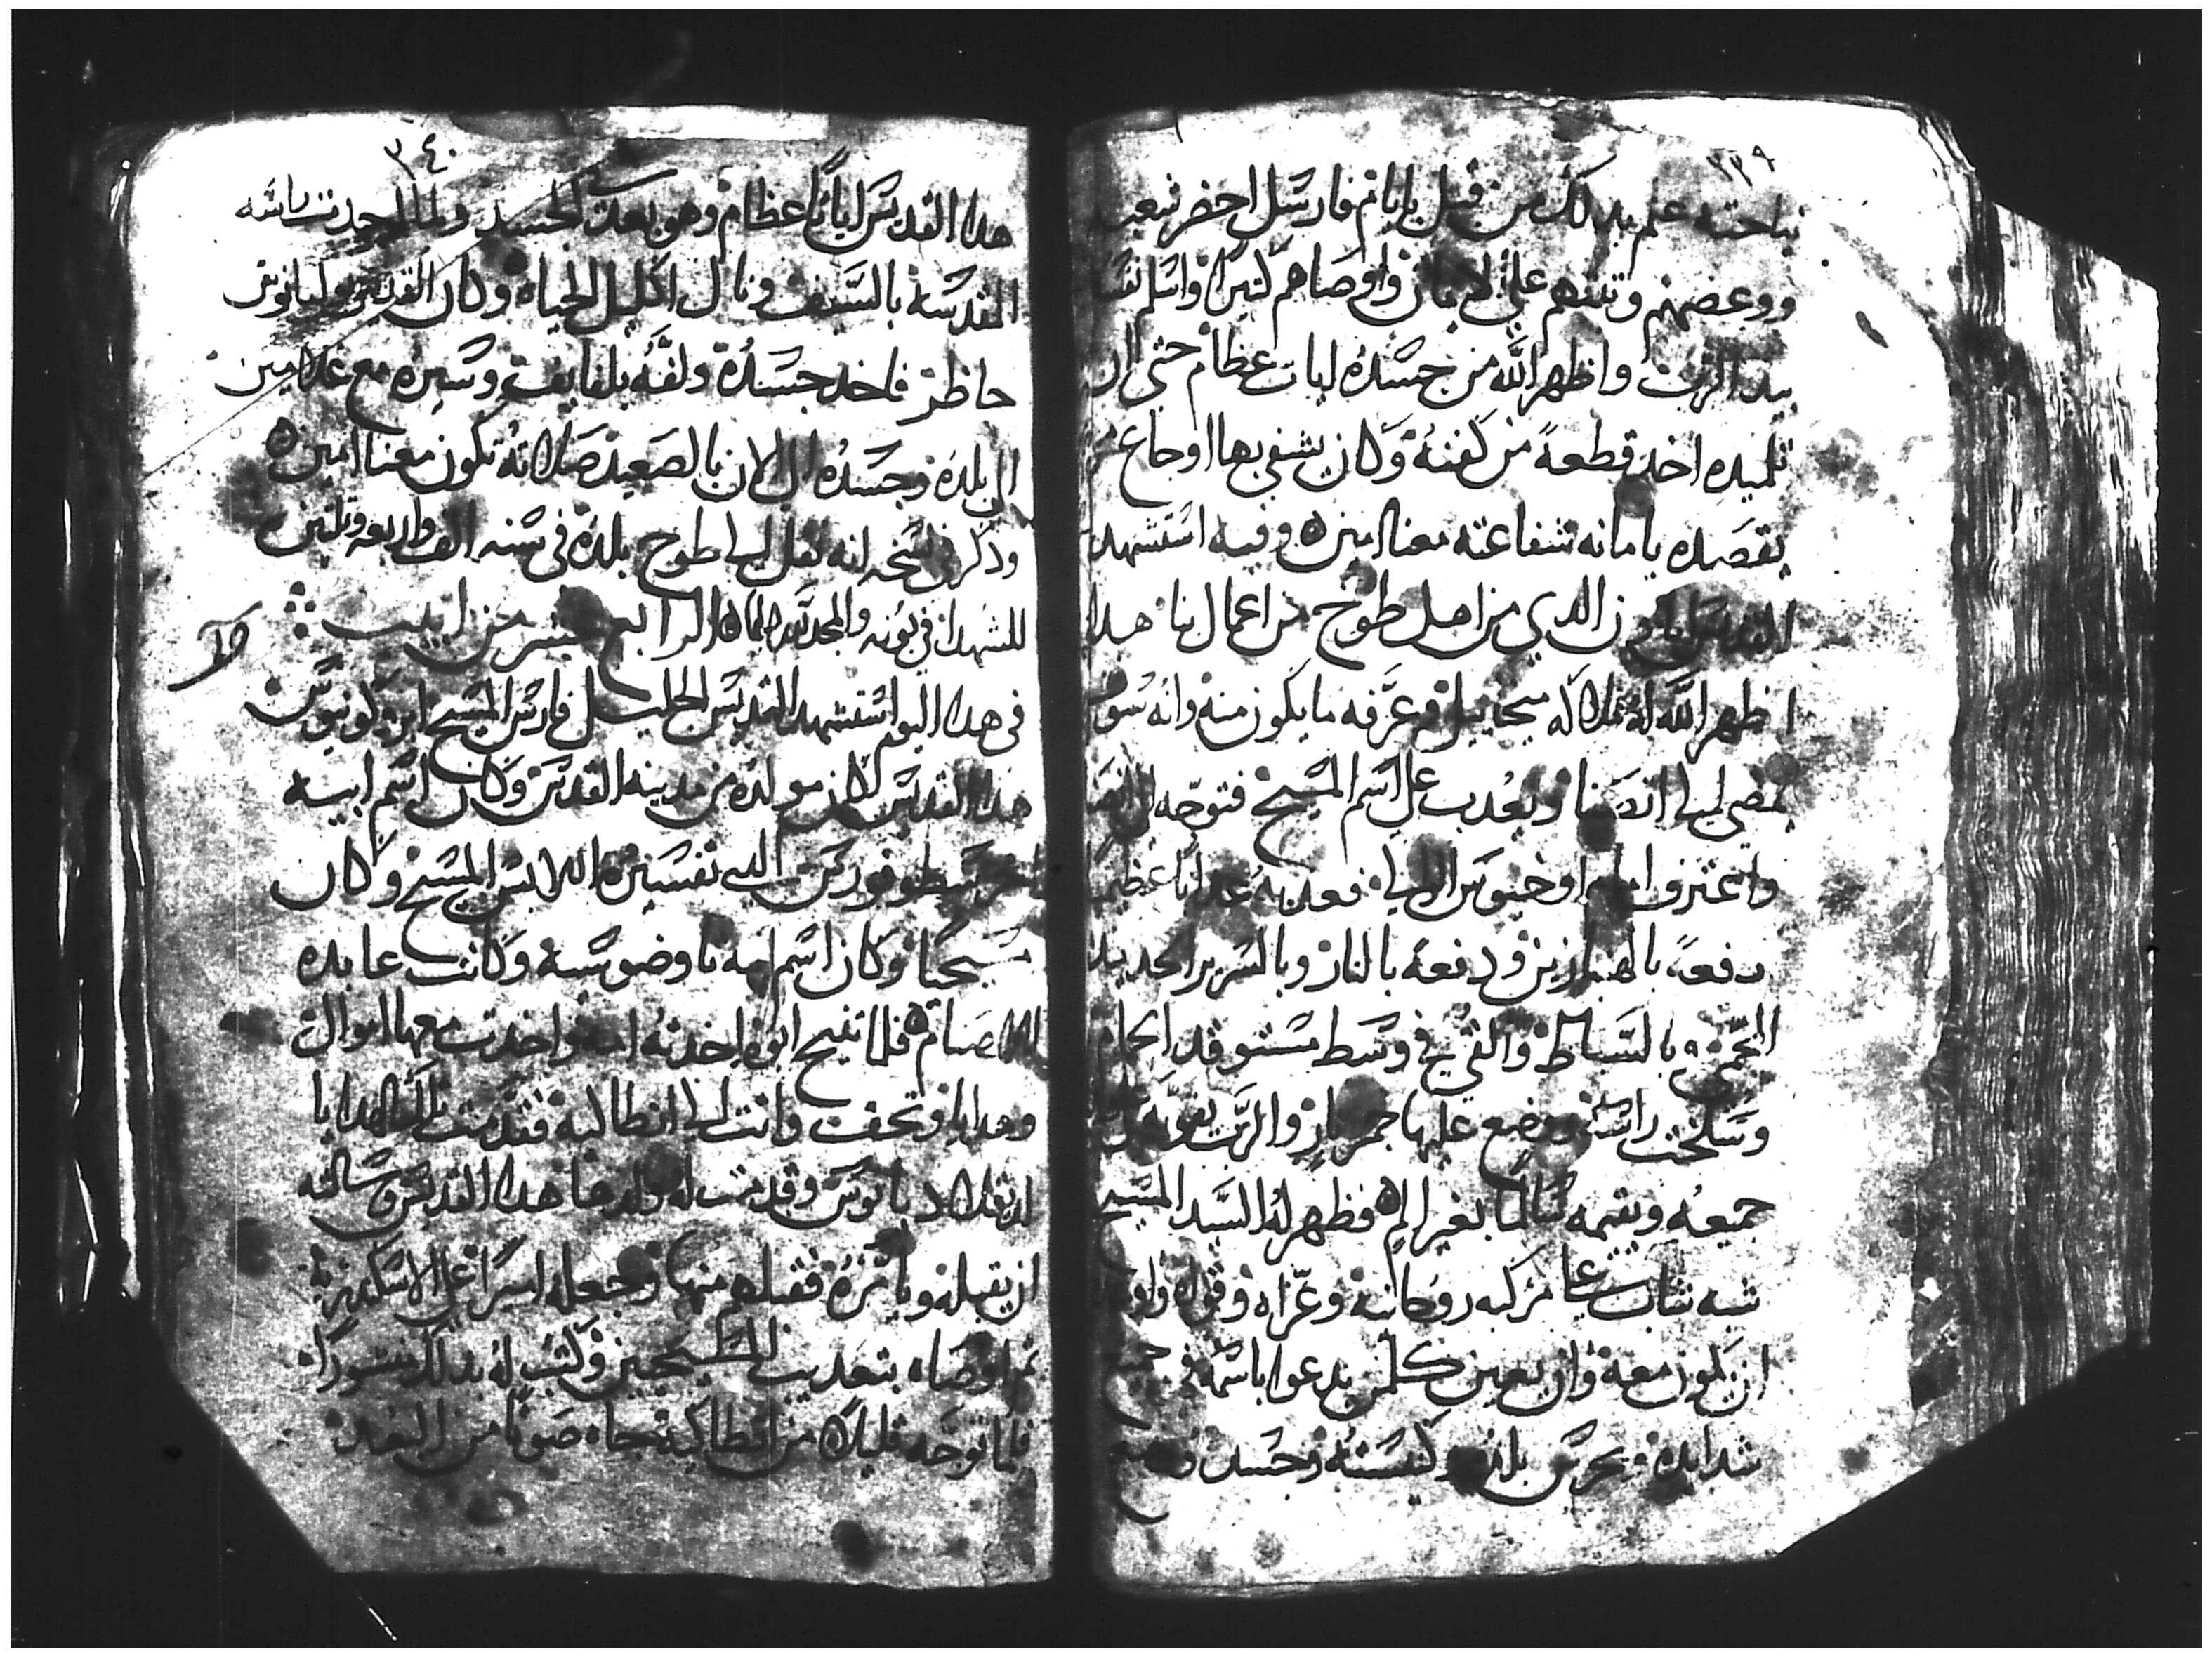 ٣٣٩
نياحته علم بدلك من قبل بايام فارسل احضر شعبه
ووعضهم وتبتهم على الامانه واوصاهم كتيرا واسلم نفسه
بيد الرب واظهر الله من جسده ايات عظام حتى ان
تلميده اخد قطعة من كفنه وكان يشفي بها اوجاع من
يقصده بامانه شفاعته معنا امين وفيه استشهد
القديس امون الدي من اهل طوخ من اعمال بنا هدا
اظهر الله له ملاكه ميخاييل وعرفه ما يكون منه وانه سوف
يمضي الى انصنا ويعدب على اسم المسيح فتوجه الى انصنا
واعترف امام اوخيوس الوالي فعدبه عدابا عظيما
دفعة بالهنبازين ودفعة بالنار وبالسرير الحديد
المحمي بالسياط والقي في وسط مستوقد الحمام
وسلخت راسه ووضع عليها جمر نار والرب يقويه
جميعه ويقيمه سالما بغير الم فظهر له السيد المسيح
شبه شاب على مركبه روحانيه وعزاه وقواه واوعده
ان يكون معه وان يعين كلمن يدعوا باسمه في جميع
شدايده ويحرس بلده وكنيسته وجسده وصنع
٣٤٠
هدا القديس اياتا عظام وهو بعد في الجسد ولما اخدت راسه
المقدسه بالسيف ونال اكليل الحياه وكان القديس يوليانوس
حاظر فاخد جسده ولفه بلفايف وسيره مع غلامين
الى بلده وجسده الى الان بالصعيد صلاته تكون معنا امين
ودكر في نسخه انه نقل الى طوخ بلده في سنه الف واربعه وتلتين
للشهدا في بونه والمجد لله دايما الرابع عشر من ابيب
في هدا اليوم استشهد القديس الجليل فارس المسيح ابروكونيوس
هدا القديس كان مولده من مدينه القدس وكان اسم ابيه
خرسطوفورس الدي تفسيره اللابس المسيح وكان
مسيحيا وكان اسم امه تاوضوسيه وكانت عابده
الاصنام فلما تنيح ابوه اخدته امه واخدت معها اموال
وهدايا وتحف واتت الى انطاكيه فقدمت تلك الهدايا
لدقلاديانوس وقدمت له ولدها هدا القديس وسالته
ان يقبله ويامره فقبلهم منها وجعله اميرا على الاسكندريه
ثم اوصاه بتعديب المسيحيين وكتب له بدلك منشورا
فلما توجه قليلا من انطاكيه جاه صوتا من البعد